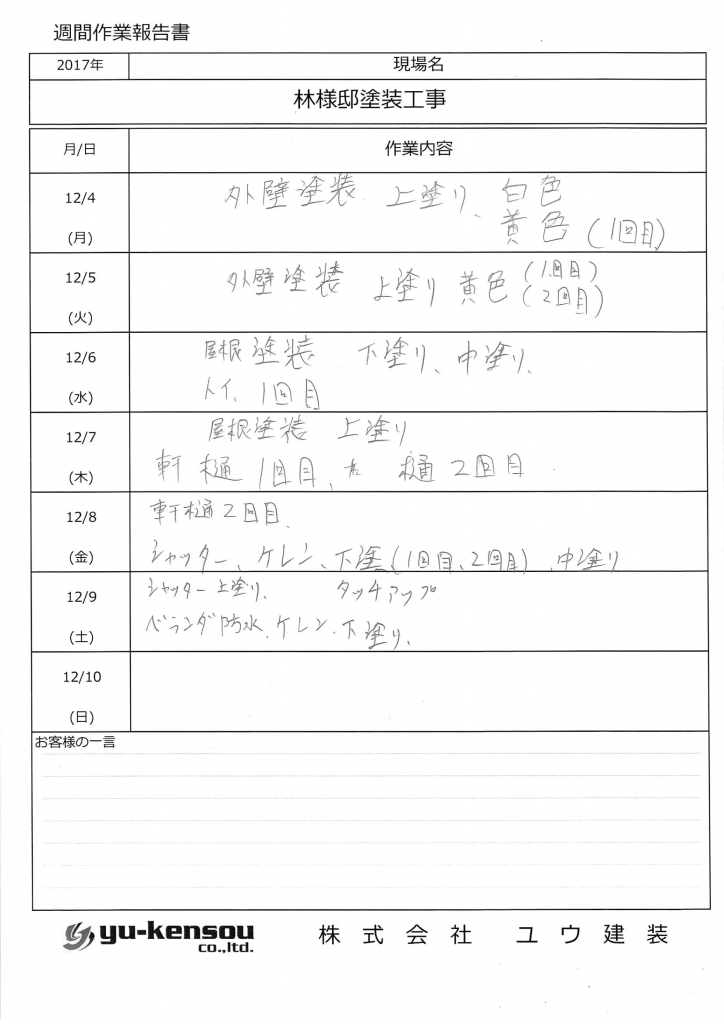 週間作業報告書
2017年 現場名
林様邸塗装工事
月/日 作業内容
12/4 外壁塗装 上塗り、白色
(月) 黄色(1回目)
12/5 外壁塗装 上塗り 黄色(1回目)
(火) (2回目)
12/6 屋根塗装 下塗り、中塗り、
(水) トイ、1回目
12/7 屋根塗装 上塗り
(木) 軒樋1回目、 樋2回目
12/8 軒樋2回目
(金) シャッター、ケレン、下塗(1回目、2回目)、中塗り
12/9 シャッター上塗り、 タッチアップ
(土) ベランダ防水、ケレン、下塗り、
12/10
(日)
お客様の一言
yu-kensou co.,ltd. 株式会社 ユウ建装